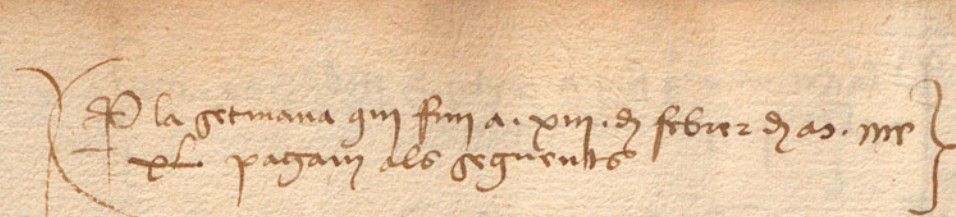 P la setmana qui finí a · xiii · d febrer d an · m e
xL pagam als seguents